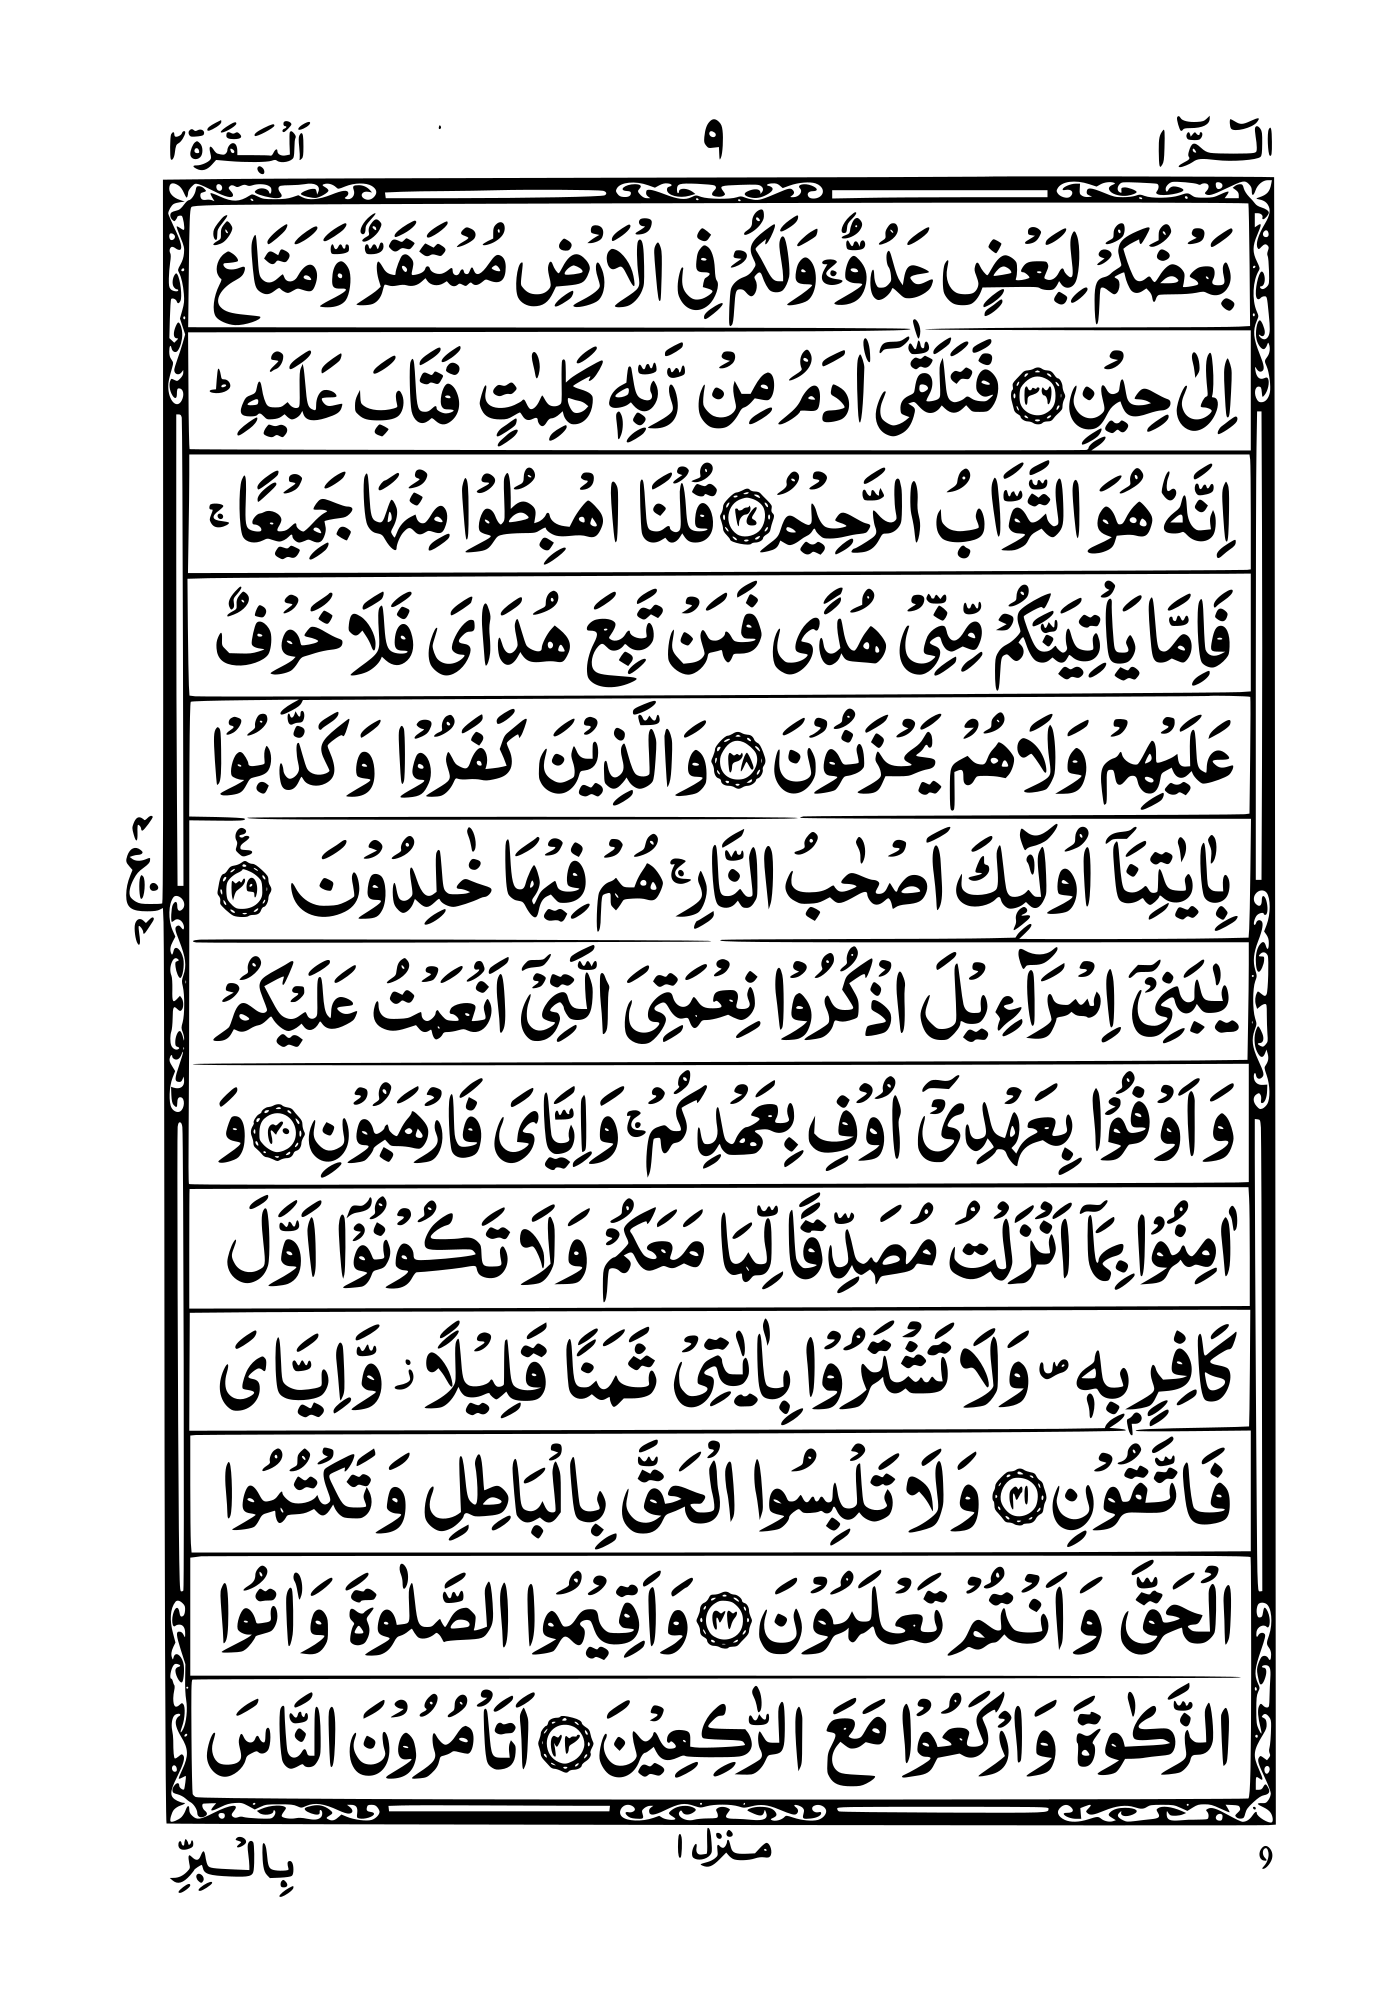 الٓـمّٓ ١ ٩ اَلْبَقَرَة ٢
بَعْضُكُمْ لِبَعْضٍ عَدُوٌّ ۚ وَلَكُمْ فِى الْاَرْضِ مُسْتَقَرٌّ وَّ مَتَاعٌ
اِلٰى حِيْنٍ ﴿۳۶﴾ فَتَلَقّٰٓى اٰدَمُ مِنْ رَّبِّهٖ كَلِمٰتٍ فَتَابَ عَلَيْهِ ؕ
اِنَّهٗ هُوَ التَّوَّابُ الرَّحِيْمُ ﴿۳۷﴾ قُلْنَا اهْبِطُوْا مِنْهَا جَمِيْعًا ۚ
فَاِمَّا يَاْتِيَنَّكُمْ مِّنِّىْ هُدًى فَمَنْ تَبِعَ هُدَاىَ فَلَا خَوْفٌ
عَلَيْهِمْ وَلَا هُمْ يَحْزَنُوْنَ ﴿۳۸﴾ وَ الَّذِيْنَ كَفَرُوْا وَ كَذَّبُوْا
بِاٰيٰتِنَآ اُولٰٓئِكَ اَصْحٰبُ النَّارِ ۚ هُمْ فِيْهَا خٰلِدُوْنَ ﴿۳۹﴾ ع
يٰبَنِىْٓ اِسْرَآءِيْلَ اذْكُرُوْا نِعْمَتِىَ الَّتِىْٓ اَنْعَمْتُ عَلَيْكُمْ
وَ اَوْفُوْا بِعَهْدِىْٓ اُوْفِ بِعَهْدِكُمْ ۚ وَاِيَّاىَ فَارْهَبُوْنِ ﴿۴۰﴾ وَ
اٰمِنُوْا بِمَآ اَنْزَلْتُ مُصَدِّقًا لِّمَا مَعَكُمْ وَلَا تَكُوْنُوْٓا اَوَّلَ
كَافِرٍۭ بِهٖ ۪ وَلَا تَشْتَرُوْا بِاٰيٰتِىْ ثَمَنًا قَلِيْلًا ز وَّاِيَّاىَ
فَاتَّقُوْنِ ﴿۴۱﴾ وَلَا تَلْبِسُوا الْحَقَّ بِالْبَاطِلِ وَ تَكْتُمُوا
الْحَقَّ وَ اَنْتُمْ تَعْلَمُوْنَ ﴿۴۲﴾ وَاَقِيْمُوا الصَّلٰوةَ وَ اٰتُوا
الزَّكٰوةَ وَ ارْكَعُوْا مَعَ الرّٰكِعِيْنَ ﴿۴۳﴾ اَتَاْمُرُوْنَ النَّاسَ
بِالْبِرِّ
منزل ١
٩